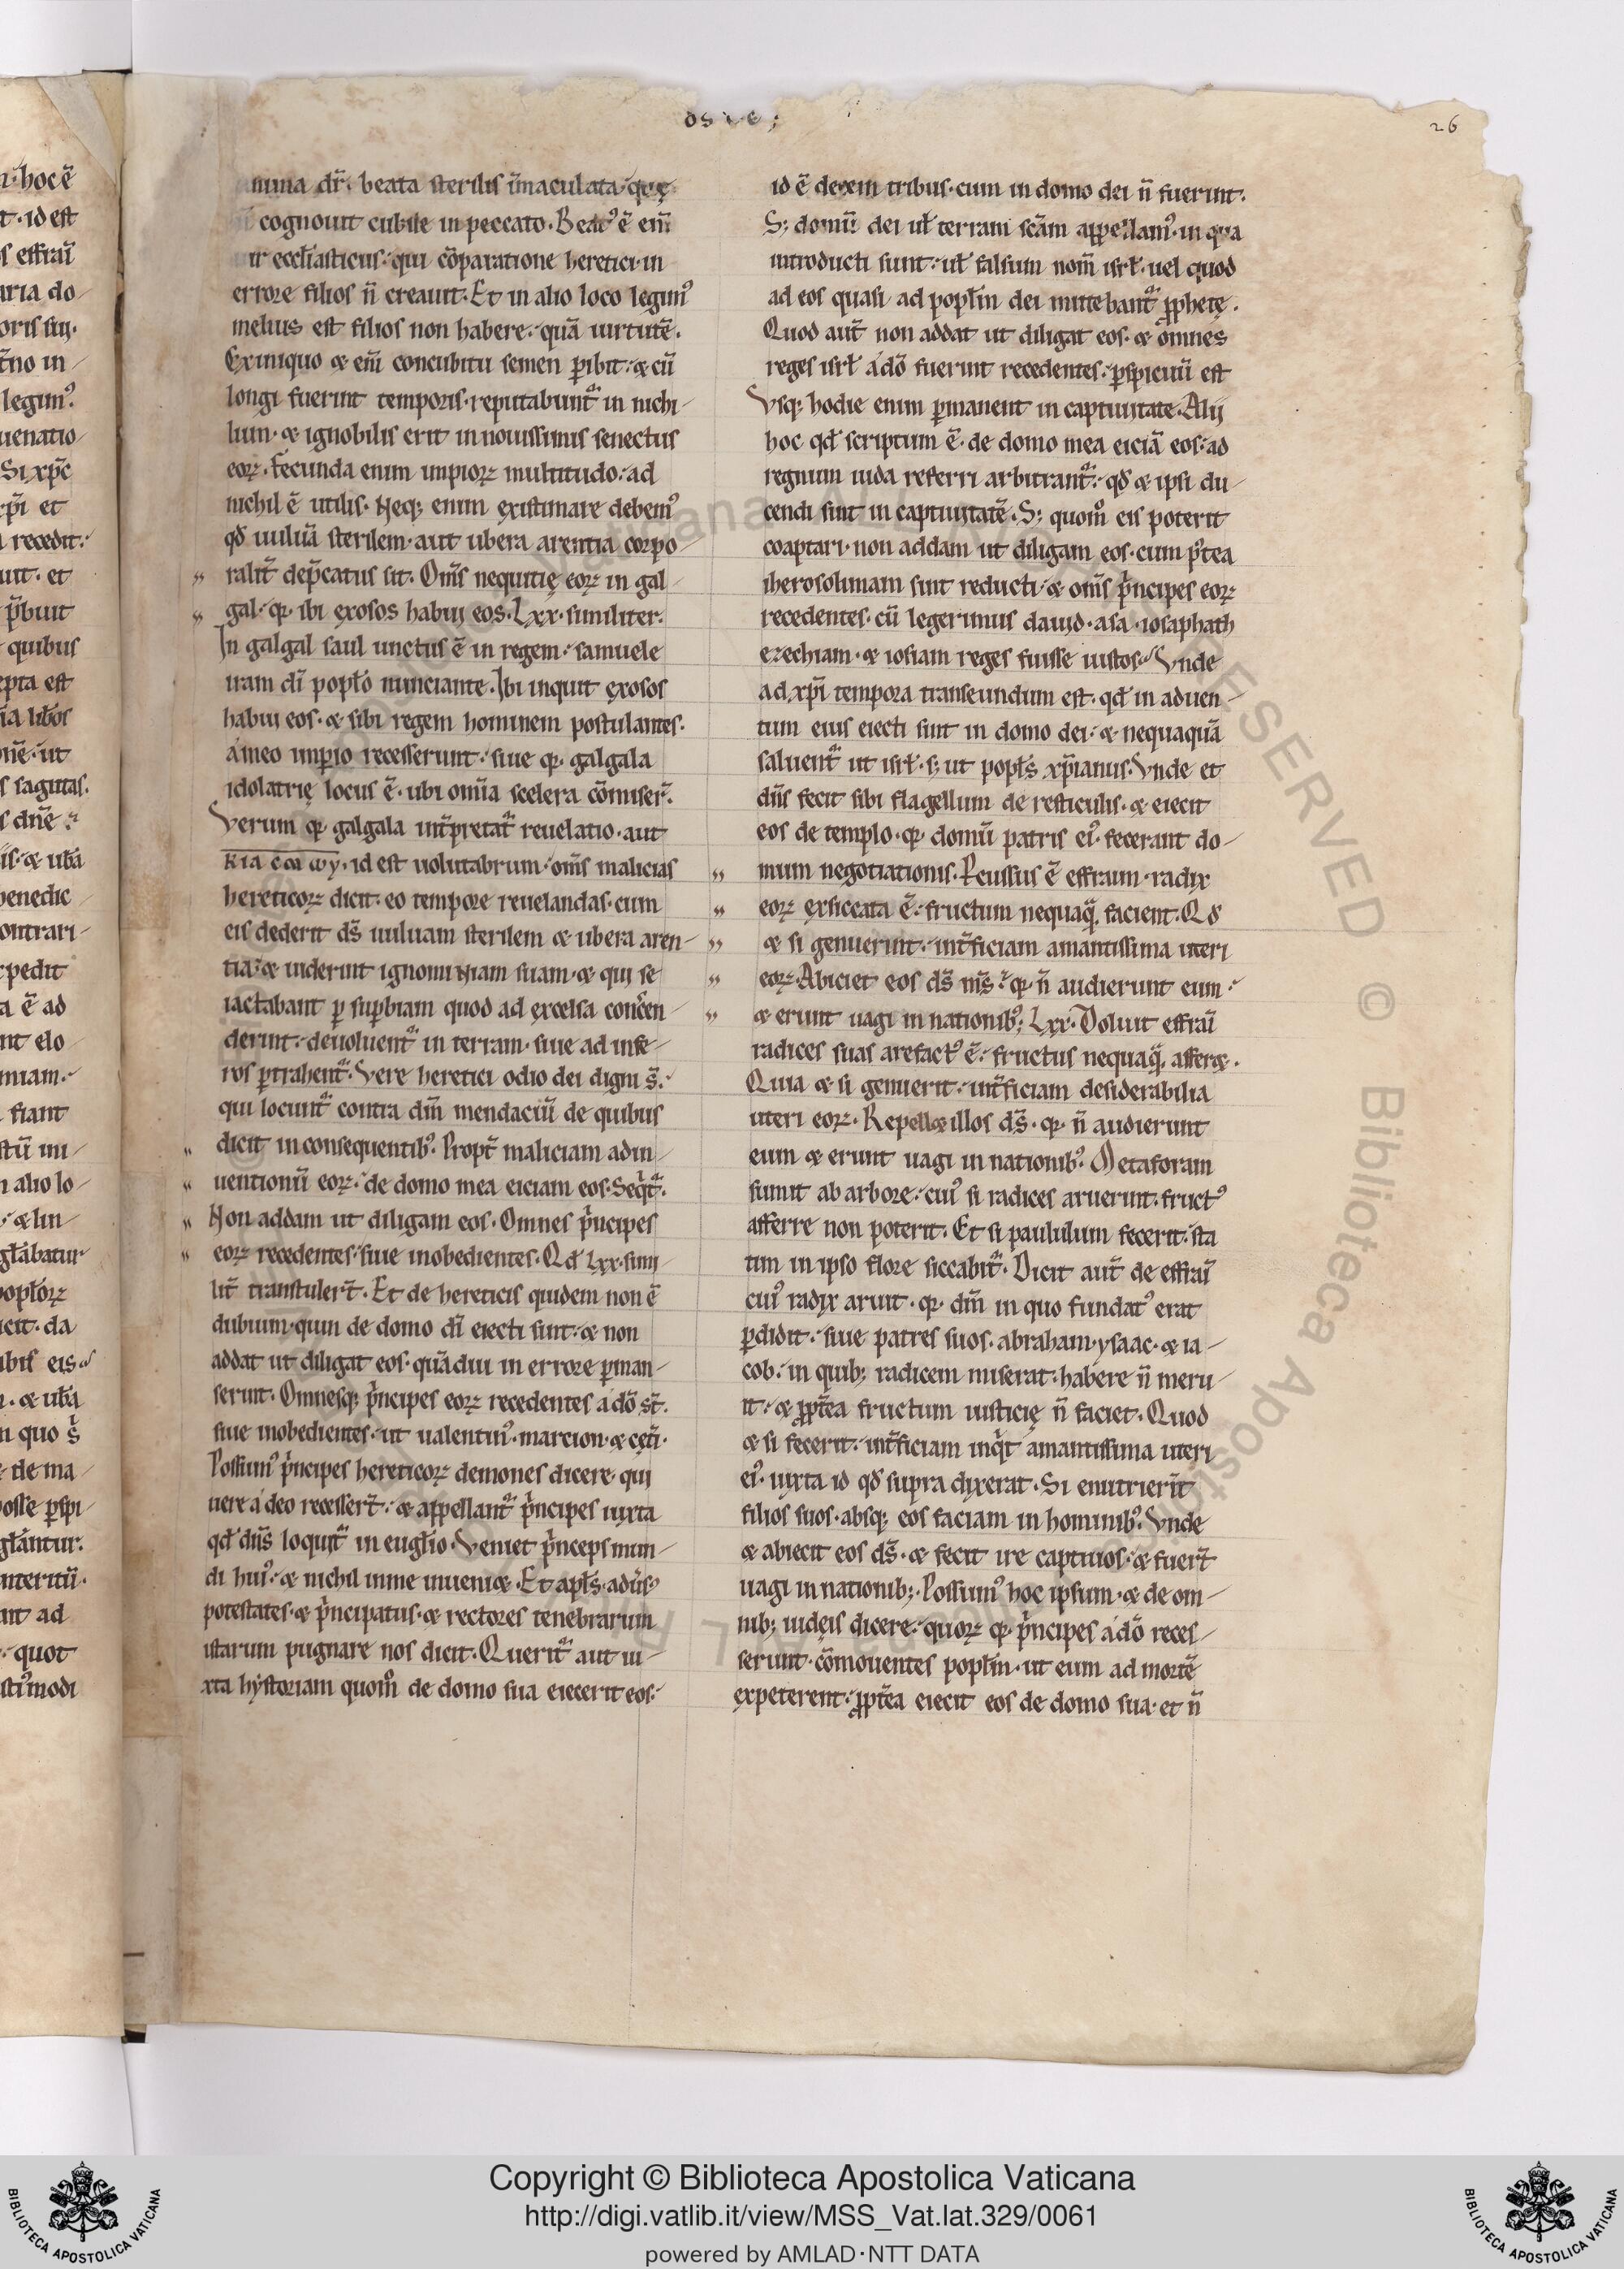 OSEE;
26
mina dr̃. beata sterilis īmaculata. que
cognouit cubile in peccato. Beatꝰ ē em̃
ecclesiasticus. qui cōparatione heretici. in
errore filios ñ creauit. Et in alio loco legimꝰ
melius est filios non habere. quā uirtutē.
Ex iniquo & em̃ concubitu semen ꝑibit. & cū
longi fuerint temporis. reputabunt᷑ in nichi-
lum. & ignobilis erit in nouissimis senectus
eoꝝ. Fecunda enim impioꝝ multitudo. ad
nichil ē utilis. Neq; enim existimare debemꝰ
qđ uuluā sterilem. aut ubera arentia corpo-
ralit̃ dep̄catus sit. Om̃s nequitię eoꝝ in gal-
gal. qꝛ ibi exosos habui eos. Lxx. similiter.
In galgal saul unctus ē in regem. samuele
iram dī popl̃o nunciante. Ibi inquit exosos
habui eos. & sibi regem hominem postulantes.
a meo imꝑio recesserunt. siue qꝛ galgala
idolatrię locus ē. ubi omīa scelera cōmiser̃.
Verum qꝛ galgala int̃pretat᷑ reuelatio. aut
. id est uolutabrum. om̃s malicias
hereticoꝝ dicit. eo tempore reuelandas. cum
eis dederit ds̃ uuluam sterilem & ubera aren-
tia. & uiderint ignominiam suam. & qui se
iactabant ꝑ suꝑbiam quod ad excelsa conscen-
derint. deuoluent᷑ in terram. siue ad infe-
ros ꝑtrahent᷑. Vere heretici odio dei digni s̃.
qui locunt᷑ contra dm̃ mendaciū de quibus
dicit in consequentibꝰ. Propt̃ maliciam adin-
uentionū eoꝝ. de domo mea eiciam eos. Seqͥt᷑.
Non addam ut diligam eos. Omnes pͥncipes
eoꝝ recedentes. siue inobedientes. Qđ Lxx. simi-
lit̃ transtuler̃. Et de hereticis quidem non ē
dubium. quin de domo dī eiecti sint. & non
addat ut diligat eos. quādiu in errore ꝑman-
serint. Omnesq; pͥncipes eoꝝ recedentes a dō st̃.
siue inobedientes. ut ualentinꝰ. marcion. & cęti.
Possumꝰ pͥncipes hereticoꝝ demones dicere. qui
uere a deo recesser̃. & appellant᷑ pͥncipes iuxta
qđ dñs loquit᷑ in euglio. Veniet pͥnceps mun-
di huiꝰ. & nichil in me inueniet. Et apl̃s. adũs
potestates. & pͥncipatus. & rectores tenebrarum
istarum pugnare nos dicit. Querit᷑ aut iu-
xta hystoriam quom̊ de domo sua eiecerit eos.
id ē decem tribus. cum in domo dei ñ fuerint.
S; domū dei ul̃ terram scām appellamꝰ. in qua
introducti sunt. ul̃ falsum nom̃ isrl̃. uel quod
ad eos quasi ad popl̃m dei mittebant᷑ ꝓphetę.
Quod aut̃ non addat ut diligat eos. & omnes
reges isrl̃ a dō fuerint recedentes. ꝑspicuū est
Vsq; hodie enim ꝑmanent in captiuitate. Alij
hoc qđ scriptum ē. de domo mea eiciā eos. ad
regnum iuda referri arbitrant᷑. qđ & ipsi du-
cendi sint in captiuitatē. S; quom̊ eis poterit
coaptari. non addam ut diligam eos. cum p̄tea
iherosolimam sint reducti. & om̃s pͥncipes eoꝝ
recedentes. cū legerimus dauid. asa. iosaphath
ezechiam. & iosiam reges fuisse iustos. Vnde
ad xp̄i tempora transeundum est. qđ in aduen-
tum eius eiecti sint in domo dei. & nequaquā
saluent᷑ ut isrl̃. s; ut popl̃s xp̄ianus. Vnde et
dñs fecit sibi flagellum de resticulis. & eiecit
eos de templo. qꝛ domū patris eiꝰ. fecerant do-
mum negotiationis. Pcussus ē effraim. radix
eoꝝ exsiccata ē. fructum nequaq̃ facient. Qđ
& si genuerint. int̃ficiam amantissima uteri
eoꝝ. Abiciet eos ds̃ ms̃. qꝛ ñ audierunt eum.
& erunt uagi in nationibꝰ; Lxx. Doluit effraī
radices suas arefactꝰ ē. fructus nequaq̃ afferet.
Quia & si genuerit. int̃ficiam desiderabilia
uteri eoꝝ. Repellet illos ds̃. qꝛ ñ audierunt
eum & erunt uagi in nationibꝰ. Metaforam
sumit ab arbore. cuiꝰ si radices aruerint. fructꝰ
afferre non poterit. Et si paululum fecerit. sta
tim in ipso flore siccabit᷑. Dicit aut̃ de effraī
cuiꝰ radix aruit. qꝛ dm̃ in quo fundatꝰ erat
ꝑdidit. siue patres suos. abraham. ysaac. & ia-
cob. in quib; radicem miserat. habere ñ meru-
it. & ꝓpt̃ea fructum iusticię ñ faciet. Quod
& si fecerit. int̃ficiam inqͥt amantissima uteri
eiꝰ. iuxta id qđ supra dixerat. Si enutrierīt
filios suos. absq; eos faciam in hominibꝰ. Vnde
& abiecit eos ds̃. & fecit ire captiuos. & fuer̃t
uagi in nationib;. Possumꝰ hoc ipsum. & de om-
nib; iudęis dicere. quoꝝ qꝛ pͥncipes a dō reces-
serunt. cōmouentes popl̃m. ut eum ad mortē
expeterent. ꝓpt̃ea eiecit eos de domo sua. et ñ
Copyright © Biblioteca Apostolica Vaticana
http://digi.vatlib.it/view/MSS_Vat.lat.329/0061
powered by AMLAD·NTT DATA
BIBLIOTECA APOSTOLICA VATICANA
BIBLIOTECA APOSTOLICA VATICANA